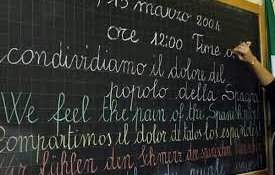 15 marzo 2004
ore 12:00 Time
condividiamo il dolore del
popolo della Spagna
We feel the pain of the Spanish
Compartimos el dolor de todos los españoles
Wir fühlen den Schmerz